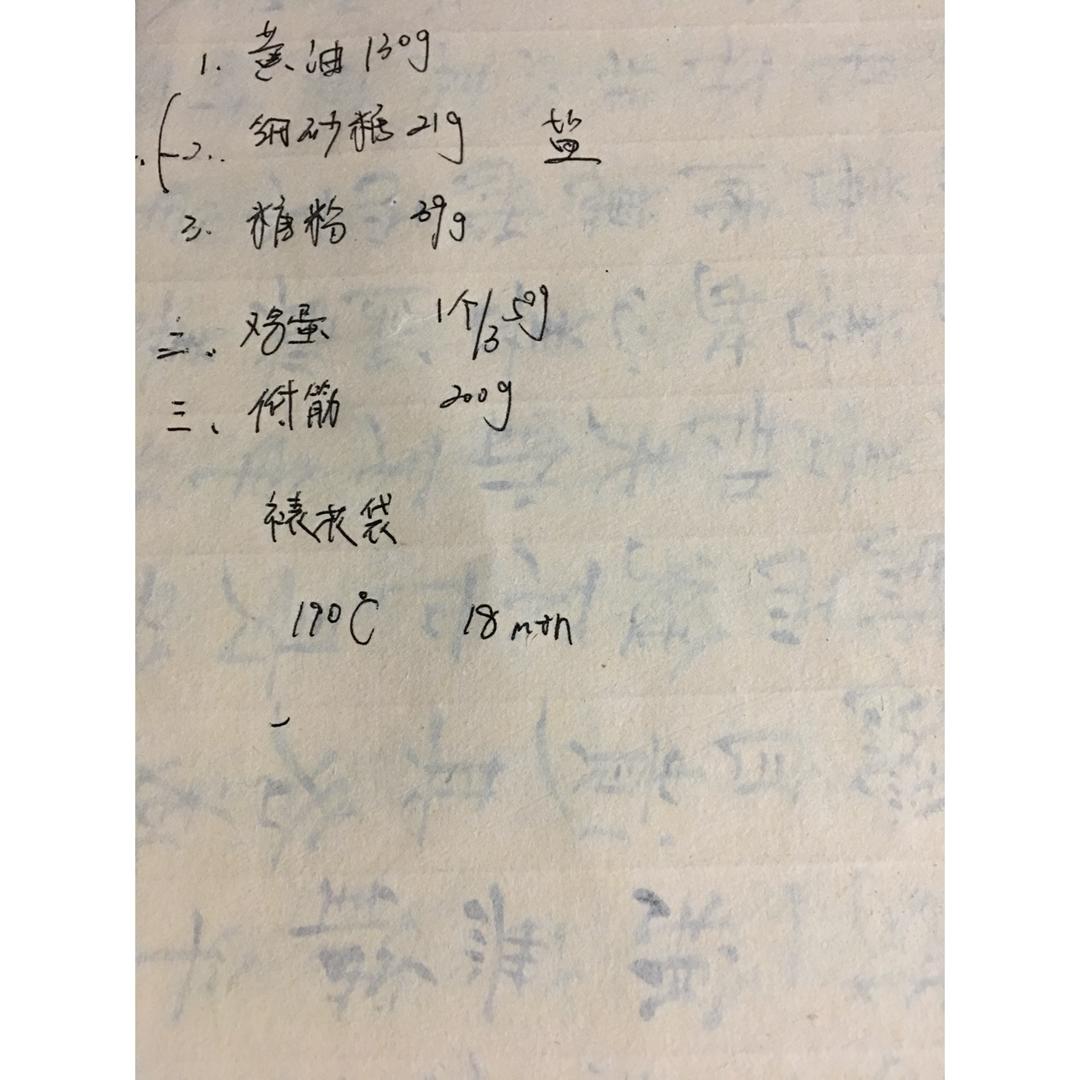 1. 黄油 130g
一、2. 细砂糖 21g 盐
3. 糖粉 39g
二、鸡蛋 1个/3 50g
三、低筋 200g
裱花袋
190℃ 18 min